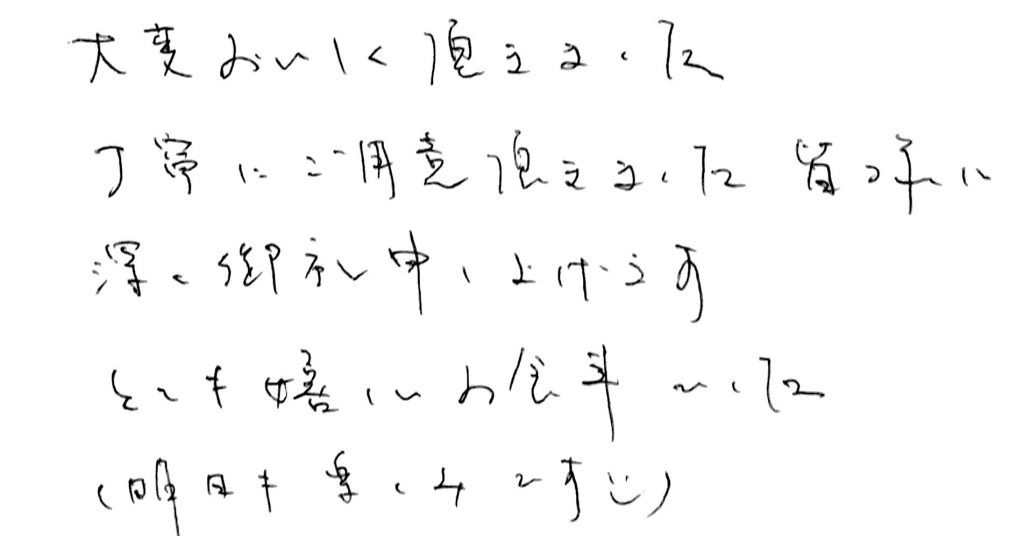 大変おいしく頂きました
丁寧にご用意頂きました 皆々様に
深く御礼申し上げます
とても嬉しいお食事でした
(明日も楽しみです☺)